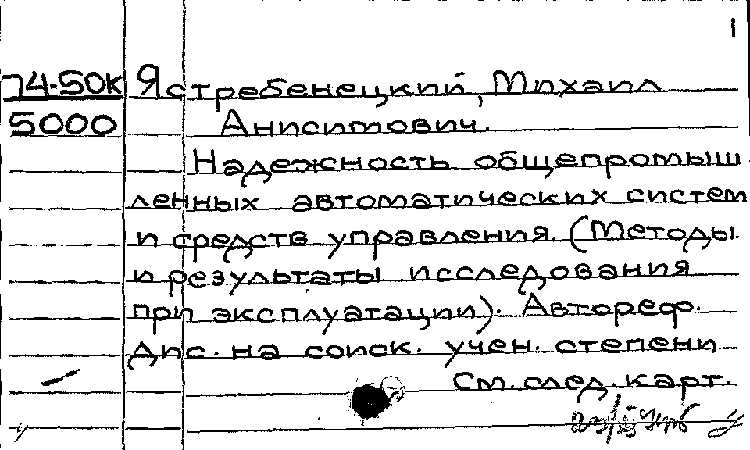 1
74-50к Ястребенецкий, Михаил
5000 Анисимович.
Надежность общепромыш
ленных автоматических систем
и средств управления. (Методы
и результаты исследования
при эксплуатации). Автореф.
дис. на соиск. учен. степени
См. след. карт.